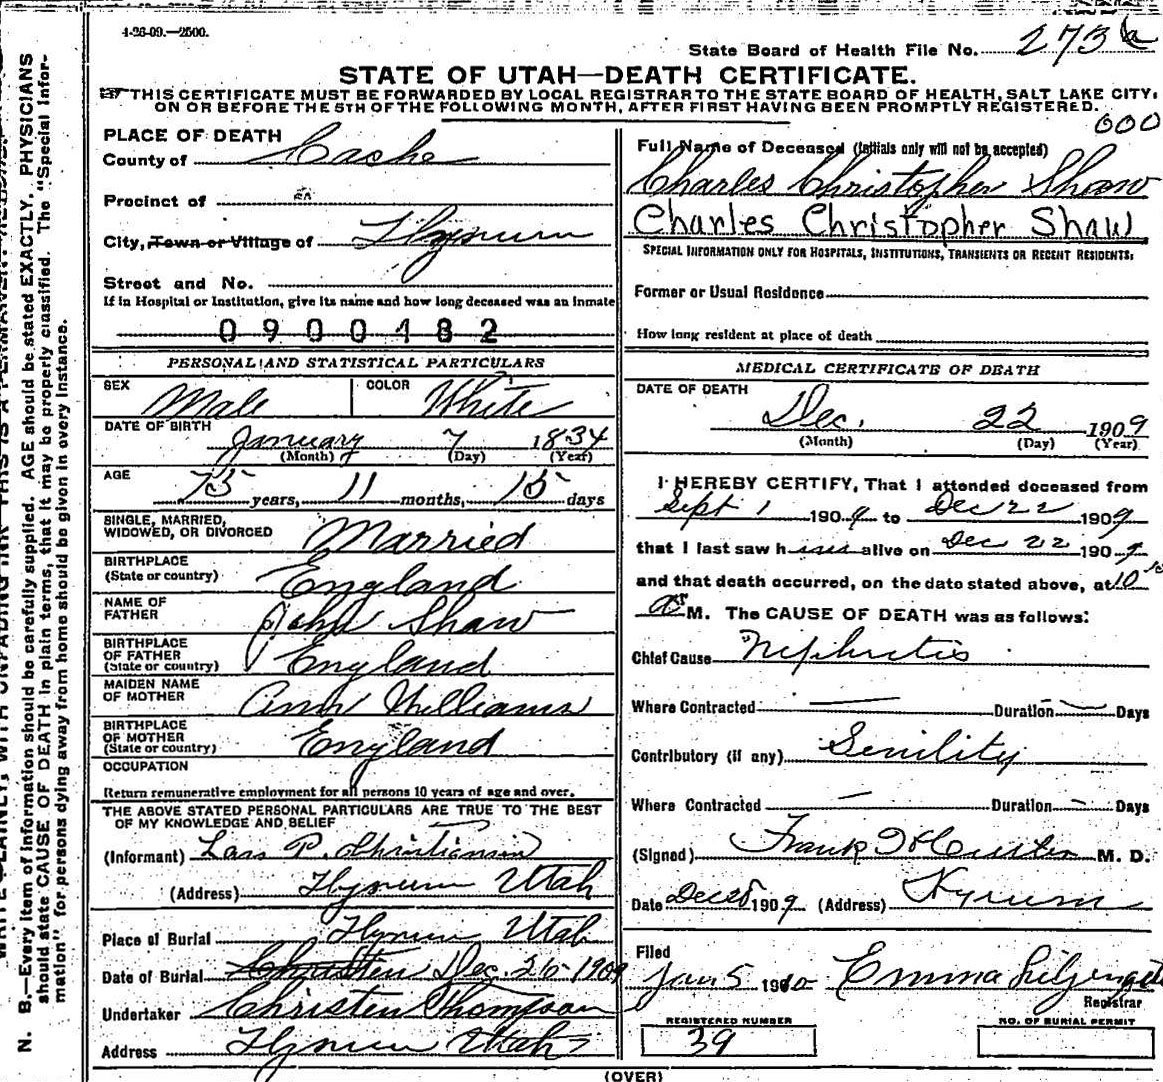 4-26-09.—2500.
State Board of Health File No. 273
STATE OF UTAH—DEATH CERTIFICATE.
THIS CERTIFICATE MUST BE FORWARDED BY LOCAL REGISTRAR TO THE STATE BOARD OF HEALTH, SALT LAKE CITY,
ON OR BEFORE THE 5TH OF THE FOLLOWING MONTH, AFTER FIRST HAVING BEEN PROMPTLY REGISTERED.
000
PLACE OF DEATH
County of Cache
Precinct of
City, Town or Village of Hyrum
Street and No.
If in Hospital or Institution, give its name and how long deceased was an inmate
0900482
Full Name of Deceased (Initials only will not be accepted)
Charles Christopher Shaw
Charles Christopher Shaw
SPECIAL INFORMATION ONLY FOR HOSPITALS, INSTITUTIONS, TRANSIENTS OR RECENT RESIDENTS:
Former or Usual Residence
How long resident at place of death
PERSONAL AND STATISTICAL PARTICULARS
SEX Male COLOR White
DATE OF BIRTH January 7 1834
(Month) (Day) (Year)
AGE 75 years, 11 months, 15 days
SINGLE, MARRIED,
WIDOWED, OR DIVORCED Married
BIRTHPLACE
(State or country) England
NAME OF
FATHER John Shaw
BIRTHPLACE
OF FATHER
(State or country) England
MAIDEN NAME
OF MOTHER Ann Williams
BIRTHPLACE
OF MOTHER
(State or country) England
OCCUPATION
Return remunerative employment for all persons 10 years of age and over.
THE ABOVE STATED PERSONAL PARTICULARS ARE TRUE TO THE BEST
OF MY KNOWLEDGE AND BELIEF
(Informant) Lars P. Christiansen
(Address) Hyrum Utah
Place of Burial Hyrum Utah
Date of Burial Christen Dec. 26 1909
Undertaker Christen Thompson
Address Hyrum Utah
MEDICAL CERTIFICATE OF DEATH
DATE OF DEATH
Dec. 22 1909
(Month) (Day) (Year)
I HEREBY CERTIFY, That I attended deceased from
Sept 1 1909 to Dec 22 1909
that I last saw him alive on Dec 22 1909
and that death occurred, on the date stated above, at 10
M. The CAUSE OF DEATH was as follows:
Chief Cause Nephritis
Where Contracted — Duration — Days
Contributory (if any) Senility
Where Contracted — Duration — Days
(Signed) Frank M. D.
Date Dec 25 1909 (Address) Hyrum
Filed
Jan 5 1910 Emma
Registrar
REGISTERED NUMBER
39
NO. OF BURIAL PERMIT
(OVER)
N. B.—Every item of information should be carefully supplied. AGE should be stated EXACTLY. PHYSICIANS
should state CAUSE OF DEATH in plain terms, that it may be properly classified. The "Special Infor-
mation" for persons dying away from home should be given in every instance.